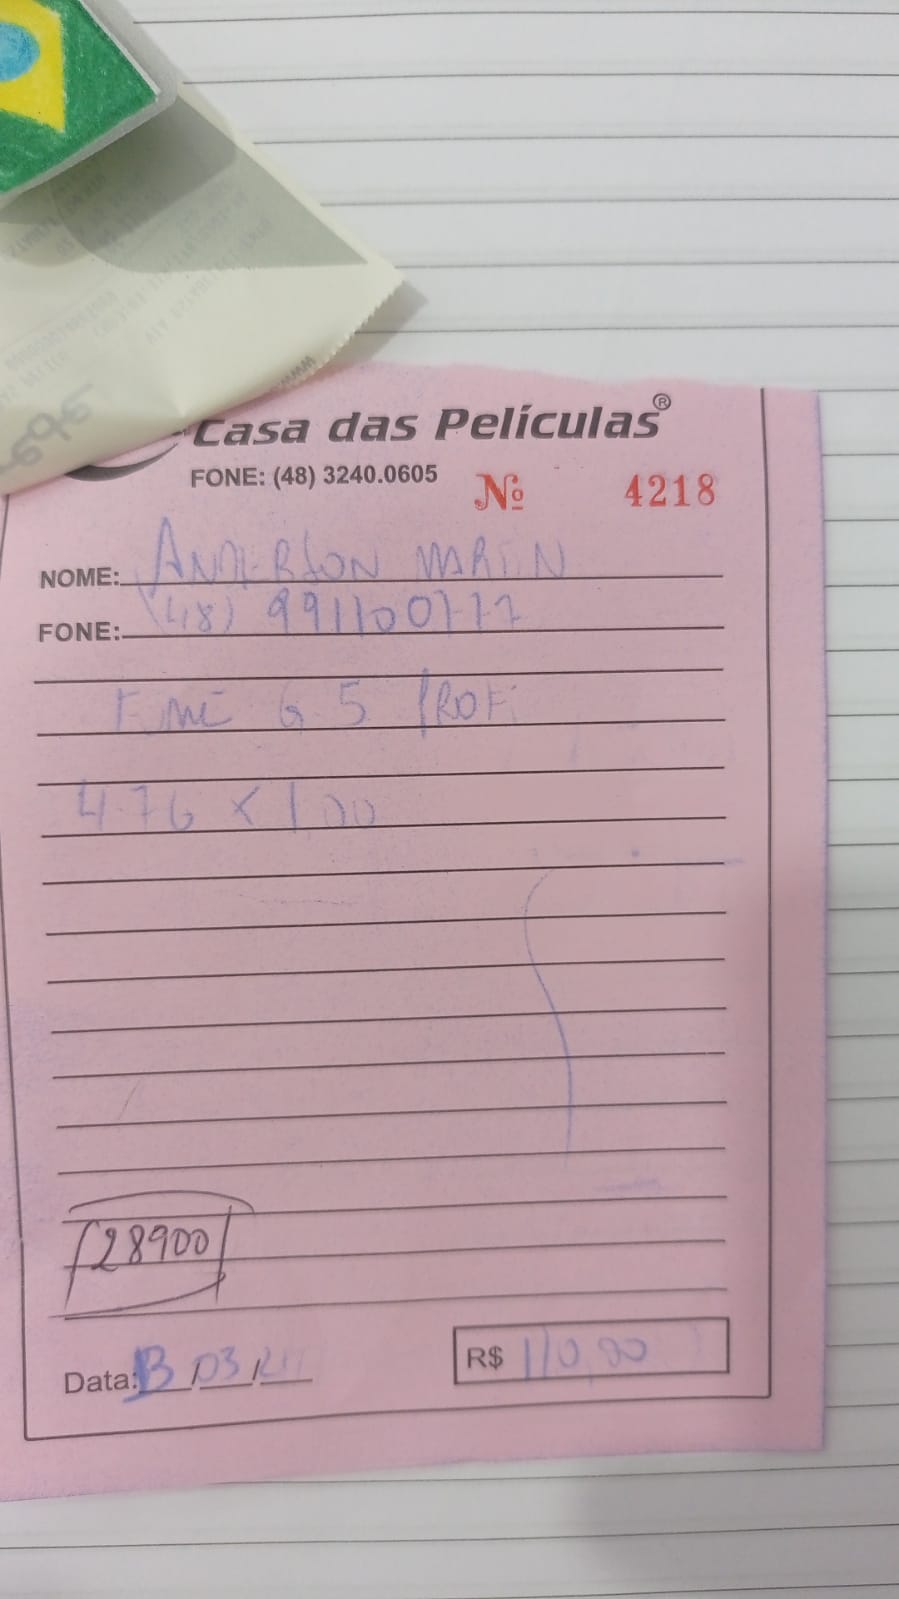 Casa das Películas®
FONE: (48) 3240.0605
Nº 4218
NOME: ANDERSON MARTIN
FONE: (48) 991100777
FUMÊ G5 PROFI
4.76 x 1,00
28900
Data: 13/03/
R$ 110,00